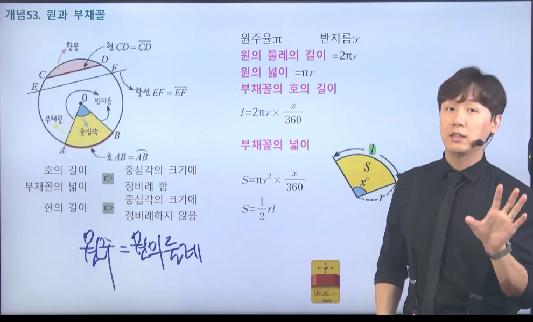 개념53. 원과 부채꼴
활꼴
현 CD=CD
C
D
E
F
할선 EF=EF
O
반지름
부채꼴
중심각
A
B
호 AB=AB
호의 길이
부채꼴의 넓이
중심각의 크기에
정비례 함
현의 길이
중심각의 크기에
정비례하지 않음
원주=원의 둘레
원주율:π 반지름:r
원의 둘레의 길이 =2πr
원의 넓이 =πr
부채꼴의 호의 길이
l=2πr× x/360
부채꼴의 넓이
S=πr²× x/360
S=1/2 rl
l
S
x°
r